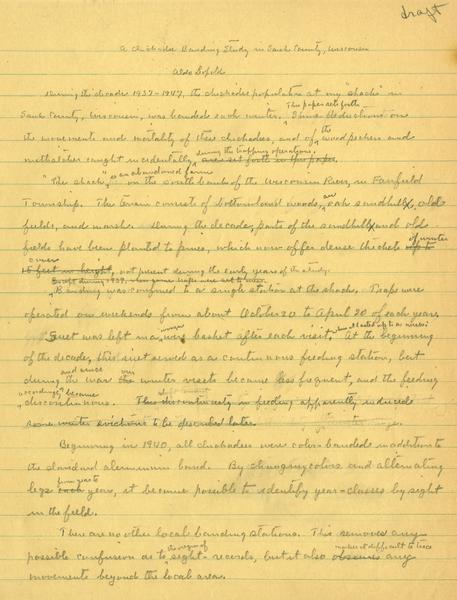 draft
A Chickadee Banding Study in Sauk County, Wisconsin
Aldo Leopold
During the decade 1937-1947, the chickadee population at my "shack" in
This paper sets forth
Sauk County, Wisconsin, was banded each winter. Some deductions on
the movements and mortality of these chickadees, and of the woodpeckers and
during the trapping operations.
nuthatches caught incidentally, are set forth in this paper.
an abandoned farm
"The shack," is on the south bank of the Wisconsin River, in Fairfield
Township. The terrain consists of bottomland woods, an oak sandhill, old
fields, and marsh. During the decade, parts of the sandhill and old
fields have been planted to pines, which now offer dense thickets up to of winter
cover
15 feet in height, not present during the early years of the study.
Except during 1937, when
Banding was confined to a single station at the shack. Traps were
operated on weekends from about October 20 to April 20 of each year.
Suet was left in a wire basket after each visit. At the beginning
of the decade, this suet served as a continuous feeding station, but
and since our
during the war the winter visits became less frequent, and the feeding
accordingly became
discontinuous. This discontinuity in feeding apparently induced
some winter evictions to be described later.
Beginning in 1940, all chickadees were color-banded in addition to
the standard aluminum band. By changing colors and alternating
from year to
legs each year, it became possible to identify year-classes by sight
in the field.
There are no other local banding stations. This removes any
the origin of makes it difficult to trace
possible confusion as to sight-records, but it also obscures any
movements beyond the local area.